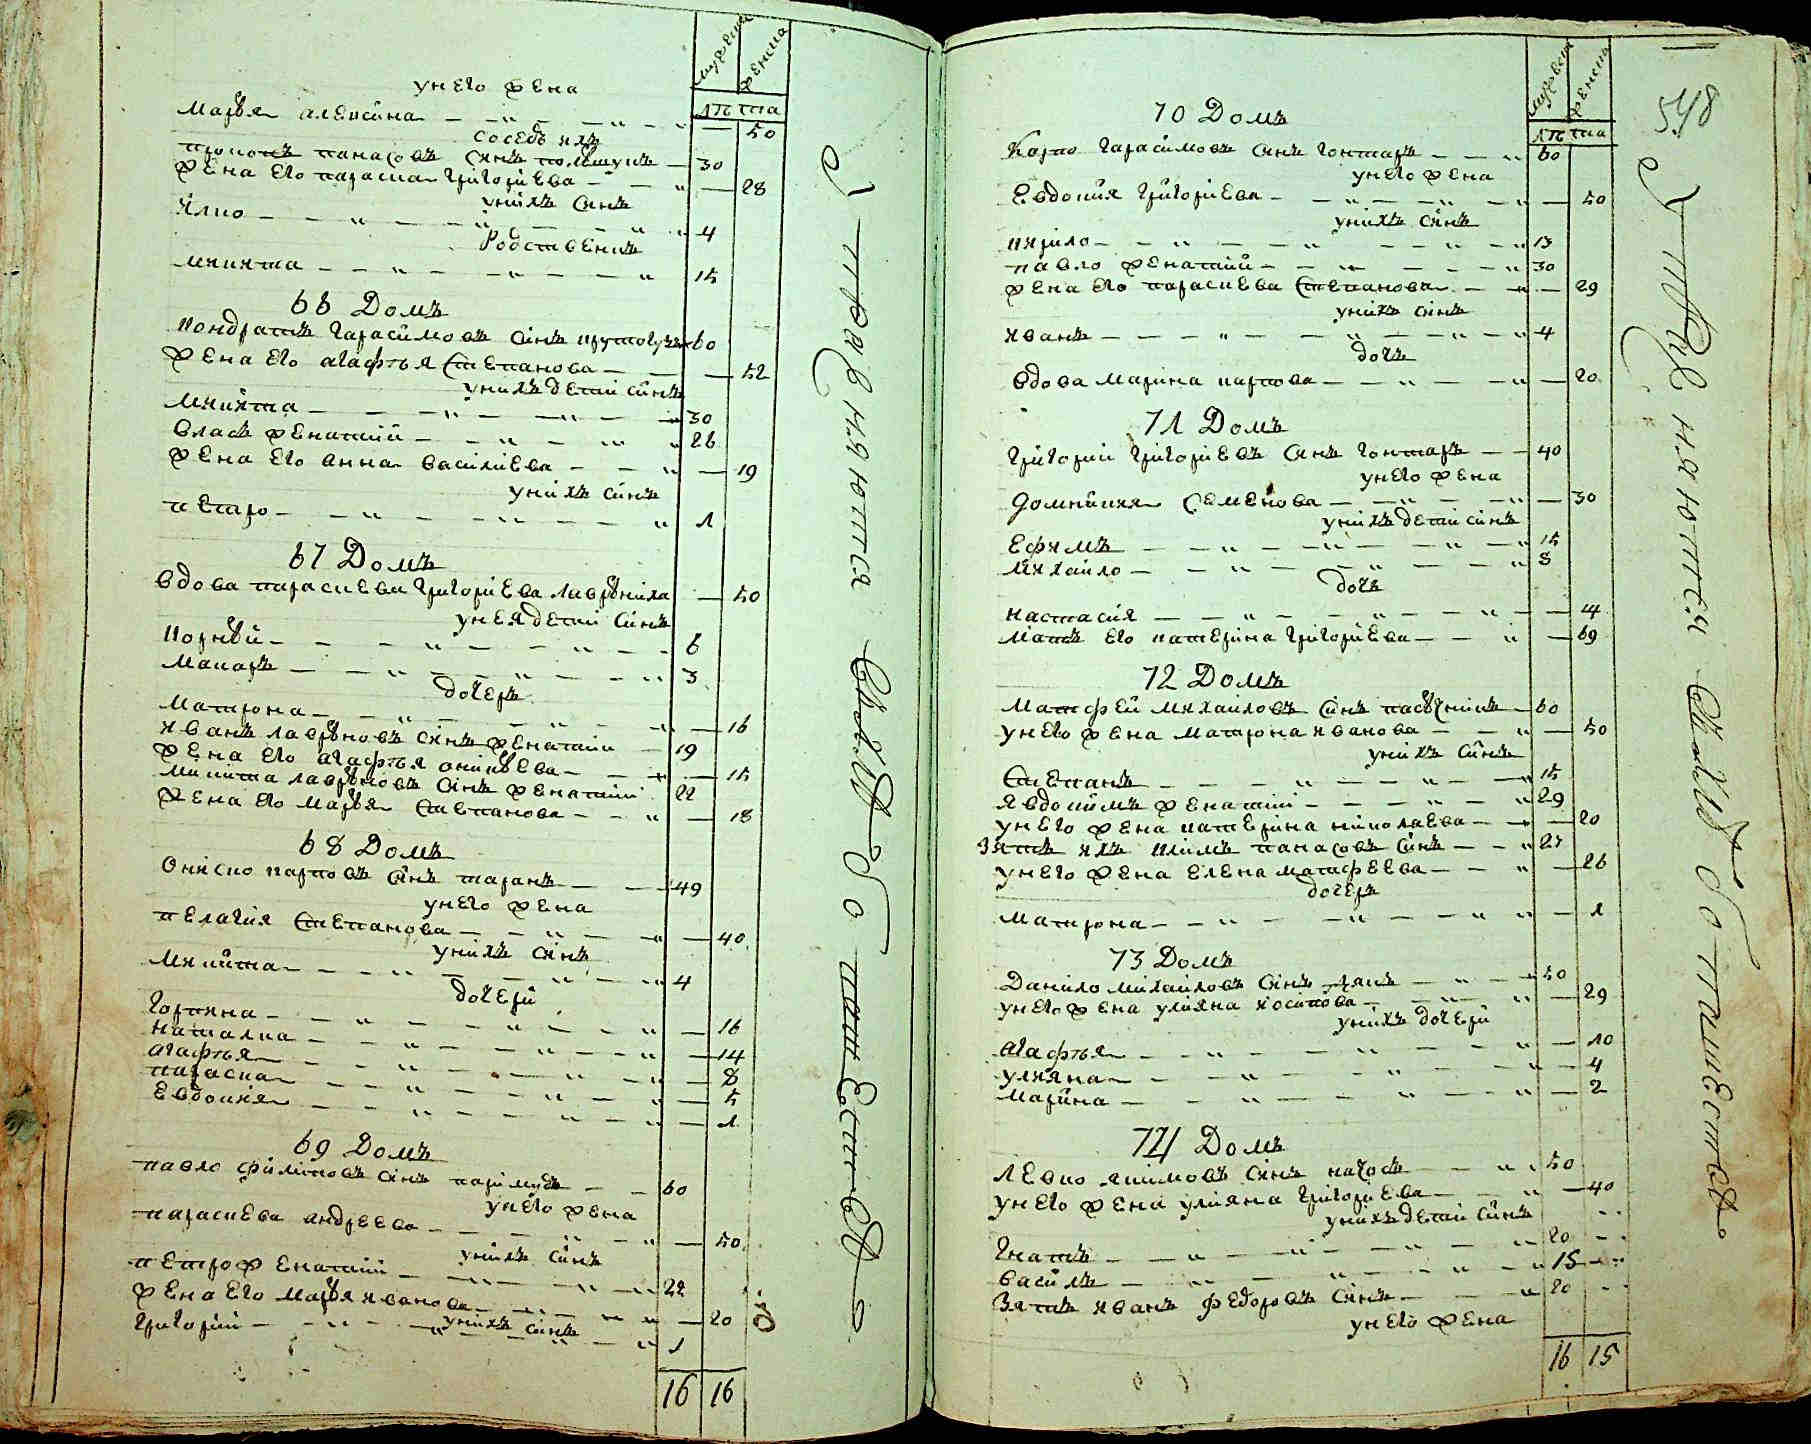 мужеска
женска
лѣта
у него жена
Марѣя алеѯиина 50
соседъ ихъ
панасовъ синъ 30
жена его параска григориева 28
у нихъ синъ
Илко 4
Родственикъ
микита 15
66 Домъ
кондратъ гарасимовъ синъ 60
жена его агафтья степанова 52
у нихъ дети синъ
микита 30
власъ женатий 26
жена его анна василиева 19
у нихъ синъ
петро 1
67 Домъ
вдова параскева григориева 50
у нея дети синъ
корнѣй 6
макаръ 3
дочеръ
матрона 16
иванъ лаврѣновъ синъ женатий 19
жена его агафтья 15
микита лаврѣновъ синъ женатий 22
жена его марѣя степанова 18
68 Домъ
Ониско карповъ синъ таранъ 49
у него жена
пелагия степанова 40
у нихъ синъ
микита 4
дочери
горпина 16
наталка 14
агафтья 8
параска 5
Евдокия 1
69 Домъ
павло филиповъ синъ 60
у него жена
параскева андреева 50
у нихъ синъ
петро женатий 22
жена его марѣя иванова 20
у нихъ синъ
григорий 1
16 16
548
мужеска
женска
лѣта
70 Домъ
Карпо гарасимовъ синъ гонтаръ 60
у него жена
Евдокия григориева 50
у нихъ синъ
кирило 13
павло женатий 30
жена его параскева степанова 29
у нихъ синъ
иванъ 4
дочъ
вдова марина карпова 20
71 Домъ
григорий григориевъ синъ гонтаръ 40
у него жена
домникия семенова 30
у нихъ дети синъ
Ефимъ 15
михайло 8
дочъ
настасия 4
мать его катерина григориева 69
72 Домъ
Матфей михаиловъ синъ пасѣчникъ 60
у него жена матрона иванова 50
у нихъ синъ
степанъ 15
явдокимъ женатий 29
у него жена катерина николаева 20
зять ихъ климъ панасовъ синъ 27
у него жена елена матфеева 26
дочеръ
матрона 1
73 Домъ
Данило михаиловъ синъ 50
у него жена улияна иосипова 29
у нихъ дочери
агафтья 10
улияна 4
марина 2
74 Домъ
левко якимовъ синъ 50
у него жена улияна григориева 40
у нихъ дети синъ
гнатъ 20
василь 15
зять иванъ федоровъ синъ 20
у него жена
16 15